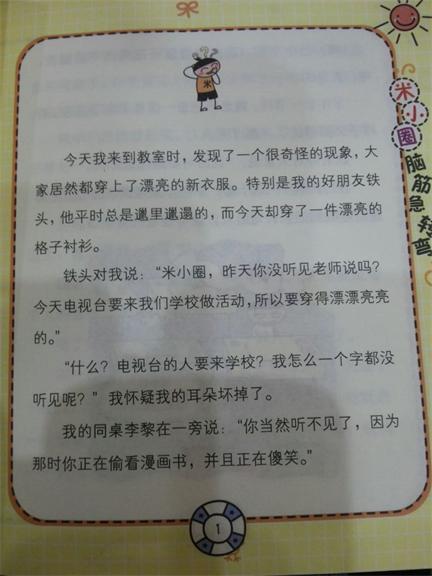 米
今天我来到教室时，发现了一个很奇怪的现象，大
家居然都穿上了漂亮的新衣服。特别是我的好朋友铁
头，他平时总是邋里邋遢的，而今天却穿了一件漂亮的
格子衬衫。
铁头对我说：“米小圈，昨天你没听见老师说吗？
今天电视台要来我们学校做活动，所以要穿得漂漂亮亮
的。”
“什么？电视台的人要来学校？我怎么一个字都没
听见呢？”我怀疑我的耳朵坏掉了。
我的同桌李黎在一旁说：“你当然听不见了，因为
那时你正在偷看漫画书，并且正在傻笑。”
1
米小圈
脑筋急转弯